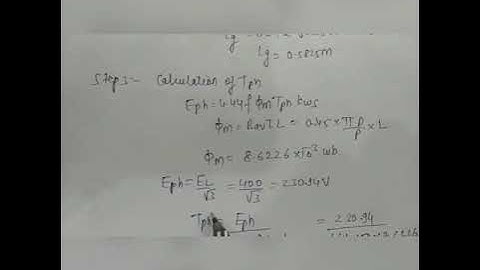 Lg = 0.5825m
Step3:- Calculation of Tph
Eph = 4.44 f Φm Tph kws
Φm = Bav τ L = 0.45 × πD/P × L
Φm = 8.6226 × 10⁻³ wb
Eph = EL/√3 = 400/√3 = 230.94V
Tph = Eph = 230.94